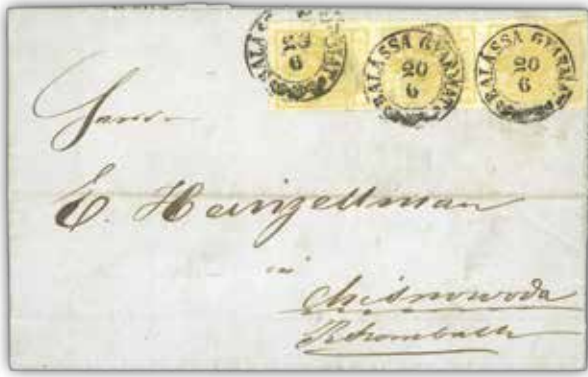 BALASSA GYARMAT
20
6
BALASSA GYARMAT
20
6
BALASSA GYARMAT
20
6
E. Heinzellman
in
Chisnowoda